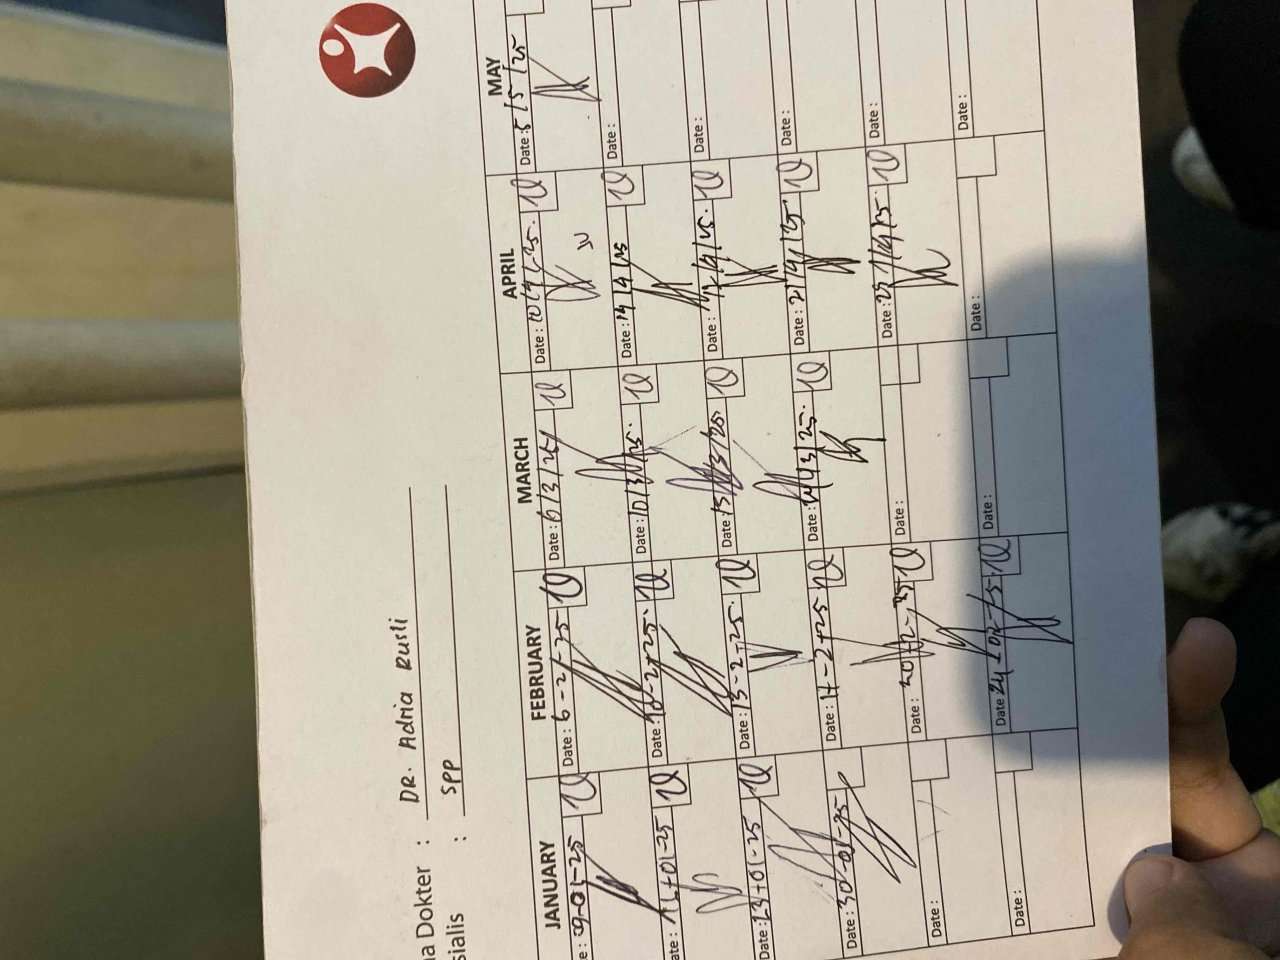 a Dokter : DR. Adria Rusli
sialis : SPP
JANUARY FEBRUARY MARCH APRIL MAY
e : 09-01-25 Date : 6-2-25 Date : 6/3/25 Date : 10/4-25. Date : 5/5/25
ate : Date : 10-2-25. Date : 10/3/25. Date : 14/4/25 Date :
Date : 23-01-25 Date : 13-2-25. Date : 13/3/25. Date : 17/4/25. Date :
Date : 30-01-25 Date : 17-2-25 Date : 24/3/25. Date : 21/4/25 Date :
Date : Date : 20-02-25 Date : Date : Date :
Date : Date 24-02-25. Date : Date : Date :